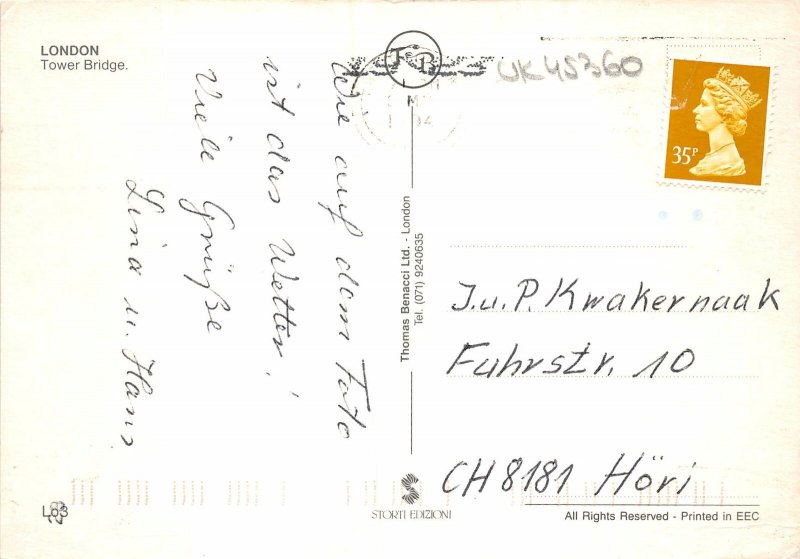 LONDON
Tower Bridge.
Wie auf dem Foto
ist das Wetter!
Viele Grüße
Lina u. Hans
FB
UK45360
35P
Thomas Benacci Ltd. - London
Tel. (071) 9240635
J.u.P. Kwakernaak
Fuhrstr. 10
CH 8181 Höri
STORTI EDIZIONI
All Rights Reserved - Printed in EEC